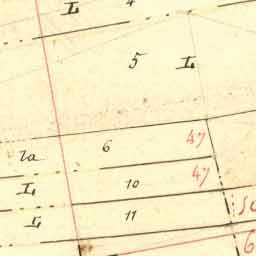 L 4
5 L
6 47
la
L 10 47
L 11
6